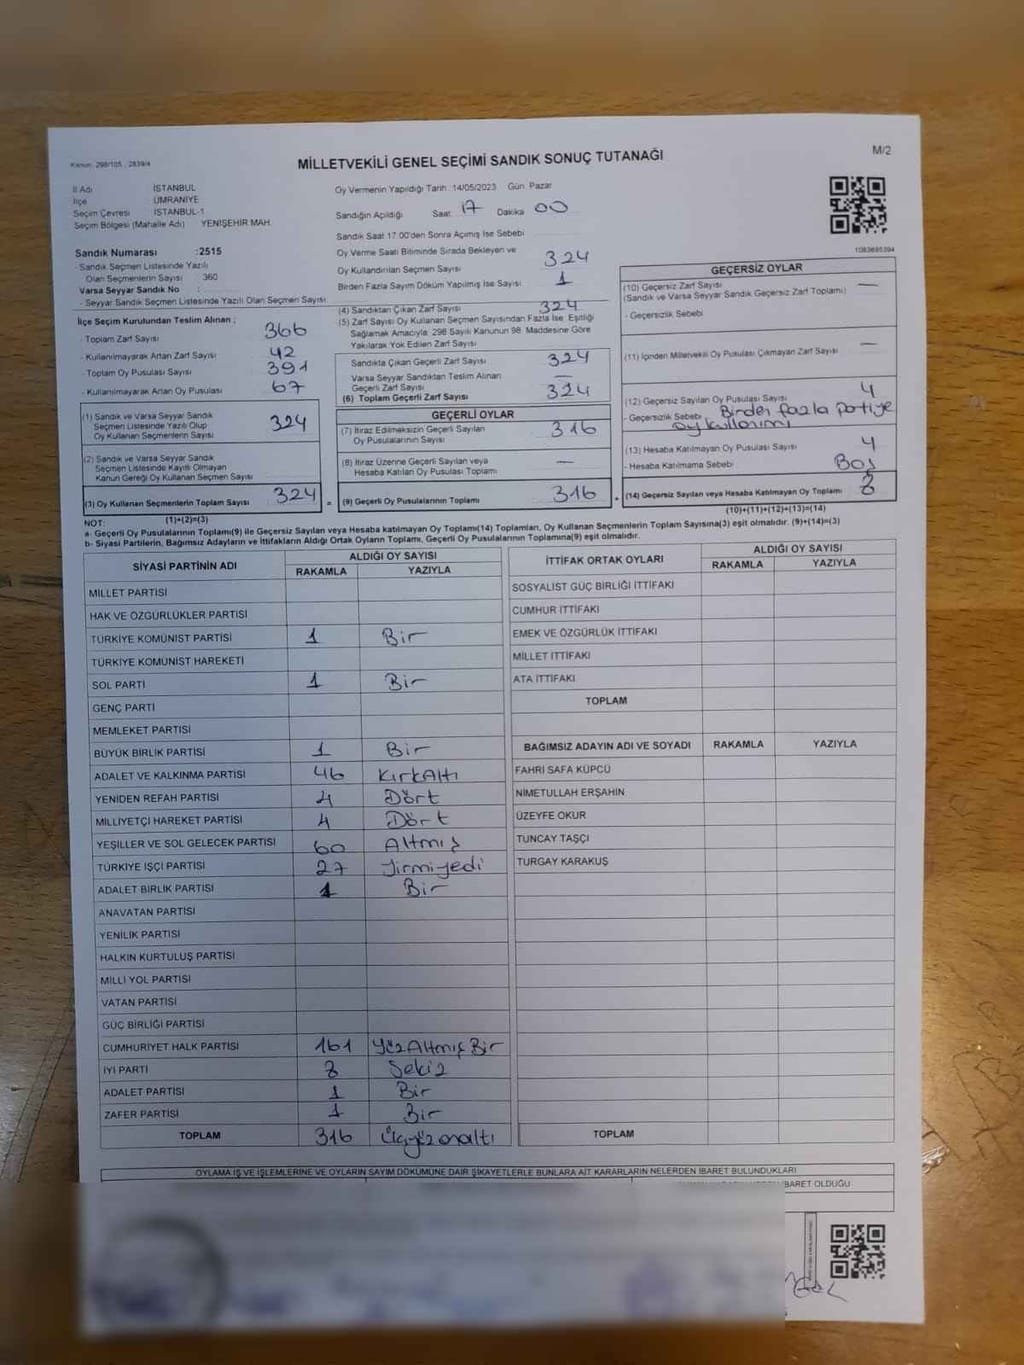 Kanun: 298/105 , 2839/4
MİLLETVEKİLİ GENEL SEÇİMİ SANDIK SONUÇ TUTANAĞI
M/2
İl Adı İSTANBUL
İlçe ÜMRANİYE
Seçim Çevresi İSTANBUL-1
Seçim Bölgesi (Mahalle Adı) YENİŞEHİR MAH.
Oy Vermenin Yapıldığı Tarih : 14/05/2023 Gün Pazar
Sandığın Açıldığı Saat 17 Dakika 00
Sandık Saat 17:00'den Sonra Açılmış İse Sebebi
Sandık Numarası :2515
- Sandık Seçmen Listesinde Yazılı
Olan Seçmenlerin Sayısı : 360
Varsa Seyyar Sandık No :
- Seyyar Sandık Seçmen Listesinde Yazılı Olan Seçmen Sayısı
Oy Verme Saati Bitiminde Sırada Bekleyen ve
Oy Kullandırılan Seçmen Sayısı 324
Birden Fazla Sayım Döküm Yapılmış İse Sayısı 1
1083685394
İlçe Seçim Kurulundan Teslim Alınan ;
- Toplam Zarf Sayısı 366
- Kullanılmayarak Artan Zarf Sayısı 42
- Toplam Oy Pusulası Sayısı 391
- Kullanılmayarak Artan Oy Pusulası 67
(1) Sandık ve Varsa Seyyar Sandık
Seçmen Listesinde Yazılı Olup
Oy Kullanan Seçmenlerin Sayısı 324
(2) Sandık ve Varsa Seyyar Sandık
Seçmen Listesinde Kayıtlı Olmayan
Kanun Gereği Oy Kullanan Seçmen Sayısı
(3) Oy Kullanan Seçmenlerin Toplam Sayısı 324 =
(1)+(2)=(3)
(4) Sandıktan Çıkan Zarf Sayısı 324
(5) Zarf Sayısı Oy Kullanan Seçmen Sayısından Fazla İse, Eşitliği
Sağlamak Amacıyla; 298 Sayılı Kanunun 98. Maddesine Göre
Yakılarak Yok Edilen Zarf Sayısı
Sandıkta Çıkan Geçerli Zarf Sayısı 324
Varsa Seyyar Sandıktan Teslim Alınan
Geçerli Zarf Sayısı —
(6) Toplam Geçerli Zarf Sayısı 324
GEÇERLİ OYLAR
(7) İtiraz Edilmeksizin Geçerli Sayılan
Oy Pusulalarının Sayısı 316
(8) İtiraz Üzerine Geçerli Sayılan veya
Hesaba Katılan Oy Pusulası Toplamı —
(9) Geçerli Oy Pusulalarının Toplamı 316 +
GEÇERSİZ OYLAR
(10) Geçersiz Zarf Sayısı —
(Sandık ve Varsa Seyyar Sandık Geçersiz Zarf Toplamı)
- Geçersizlik Sebebi
(11) İçinden Milletvekili Oy Pusulası Çıkmayan Zarf Sayısı —
(12) Geçersiz Sayılan Oy Pusulası Sayısı 4
- Geçersizlik Sebebi Birden fazla partiye
oy kullanımı
(13) Hesaba Katılmayan Oy Pusulası Sayısı 4
- Hesaba Katılmama Sebebi Boş
(14) Geçersiz Sayılan veya Hesaba Katılmayan Oy Toplamı 8
(10)+(11)+(12)+(13)=(14)
NOT:
a- Geçerli Oy Pusulalarının Toplamı(9) ile Geçersiz Sayılan veya Hesaba katılmayan Oy Toplamı(14) Toplamları, Oy Kullanan Seçmenlerin Toplam Sayısına(3) eşit olmalıdır. (9)+(14)=(3)
b- Siyasi Partilerin, Bağımsız Adayların ve İttifakların Aldığı Ortak Oyların Toplamı, Geçerli Oy Pusulalarının Toplamına(9) eşit olmalıdır.
SİYASİ PARTİNİN ADI ALDIĞI OY SAYISI
RAKAMLA YAZIYLA
MİLLET PARTİSİ
HAK VE ÖZGÜRLÜKLER PARTİSİ
TÜRKİYE KOMÜNİST PARTİSİ 1 Bir
TÜRKİYE KOMÜNİST HAREKETİ
SOL PARTİ 1 Bir
GENÇ PARTİ
MEMLEKET PARTİSİ
BÜYÜK BİRLİK PARTİSİ 1 Bir
ADALET VE KALKINMA PARTİSİ 46 KırkAltı
YENİDEN REFAH PARTİSİ 4 Dört
MİLLİYETÇİ HAREKET PARTİSİ 4 Dört
YEŞİLLER VE SOL GELECEK PARTİSİ 60 Altmış
TÜRKİYE İŞÇİ PARTİSİ 27 Yirmiyedi
ADALET BİRLİK PARTİSİ 1 Bir
ANAVATAN PARTİSİ
YENİLİK PARTİSİ
HALKIN KURTULUŞ PARTİSİ
MİLLİ YOL PARTİSİ
VATAN PARTİSİ
GÜÇ BİRLİĞİ PARTİSİ
CUMHURİYET HALK PARTİSİ 161 YüzAltmışBir
İYİ PARTİ 8 Sekiz
ADALET PARTİSİ 1 Bir
ZAFER PARTİSİ 1 Bir
TOPLAM 316 Üçyüzonaltı
İTTİFAK ORTAK OYLARI ALDIĞI OY SAYISI
RAKAMLA YAZIYLA
SOSYALİST GÜÇ BİRLİĞİ İTTİFAKI
CUMHUR İTTİFAKI
EMEK VE ÖZGÜRLÜK İTTİFAKI
MİLLET İTTİFAKI
ATA İTTİFAKI
TOPLAM
BAĞIMSIZ ADAYIN ADI VE SOYADI RAKAMLA YAZIYLA
FAHRİ SAFA KÜPCÜ
NİMETULLAH ERŞAHİN
ÜZEYFE OKUR
TUNCAY TAŞÇI
TURGAY KARAKUŞ
TOPLAM
OYLAMA İŞ VE İŞLEMLERİNE VE OYLARIN SAYIM DÖKÜMÜNE DAİR ŞİKAYETLERLE BUNLARA AİT KARARLARIN NELERDEN İBARET BULUNDUKLARI
İBARET OLDUĞU